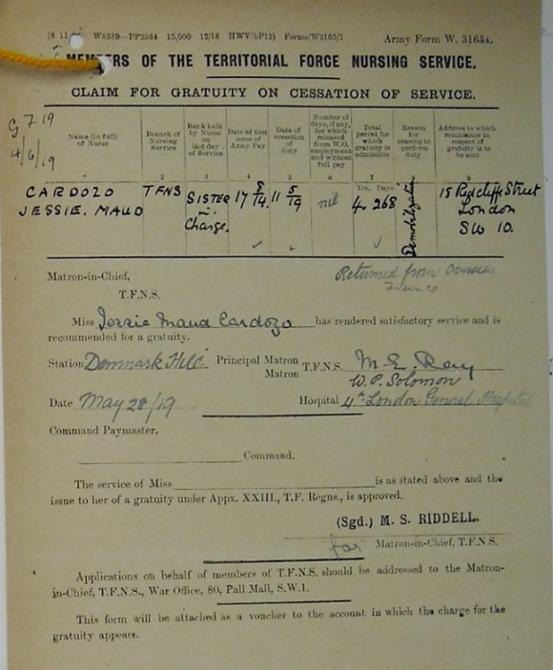 (8 11 W8389—PP2364 15,000 12/18 HWV(hP12) Forms/W3165/1 Army Form W. 3165A.
MEMBERS OF THE TERRITORIAL FORCE NURSING SERVICE.
CLAIM FOR GRATUITY ON CESSATION OF SERVICE.
G 7 19
4/6/19
Name (in full) of Nurse
Branch of Nursing Service
Rank held by Nurse on last day of Service
Date of first issue of Army Pay
Date of cessation of duty
Number of days, if any, for which released from W.O. employment and without full pay
Total period for which gratuity is admissible
Reason for ceasing to perform duty
Address to which remittance in respect of gratuity is to be sent
2 3 4 5 6 7 8 9
Yrs. Days
CARDOZO JESSIE. MAUD
TFNS
SISTER in Charge.
17 8/14
11 5/19
nil
4. 268
Demobilization
15 Redcliffe Street
London
SW 10.
Returned from Overseas
France
Matron-in-Chief,
T.F.N.S.
Miss Jessie Maud Cardozo has rendered satisfactory service and is
recommended for a gratuity.
Station Denmark Hill Principal Matron Matron T.F.N.S. M. E. Ray
W. P. Solomon
Date May 28/19 Hospital 4th London General Hospital
Command Paymaster,
Command.
The service of Miss is as stated above and the
issue to her of a gratuity under Appx. XXIII., T.F. Regns., is approved.
(Sgd.) M. S. RIDDELL
for Matron-in-Chief, T.F.N.S.
Applications on behalf of members of T.F.N.S. should be addressed to the Matron-
in-Chief, T.F.N.S., War Office, 80, Pall Mall, S.W.1.
This form will be attached as a voucher to the account in which the charge for the
gratuity appears.